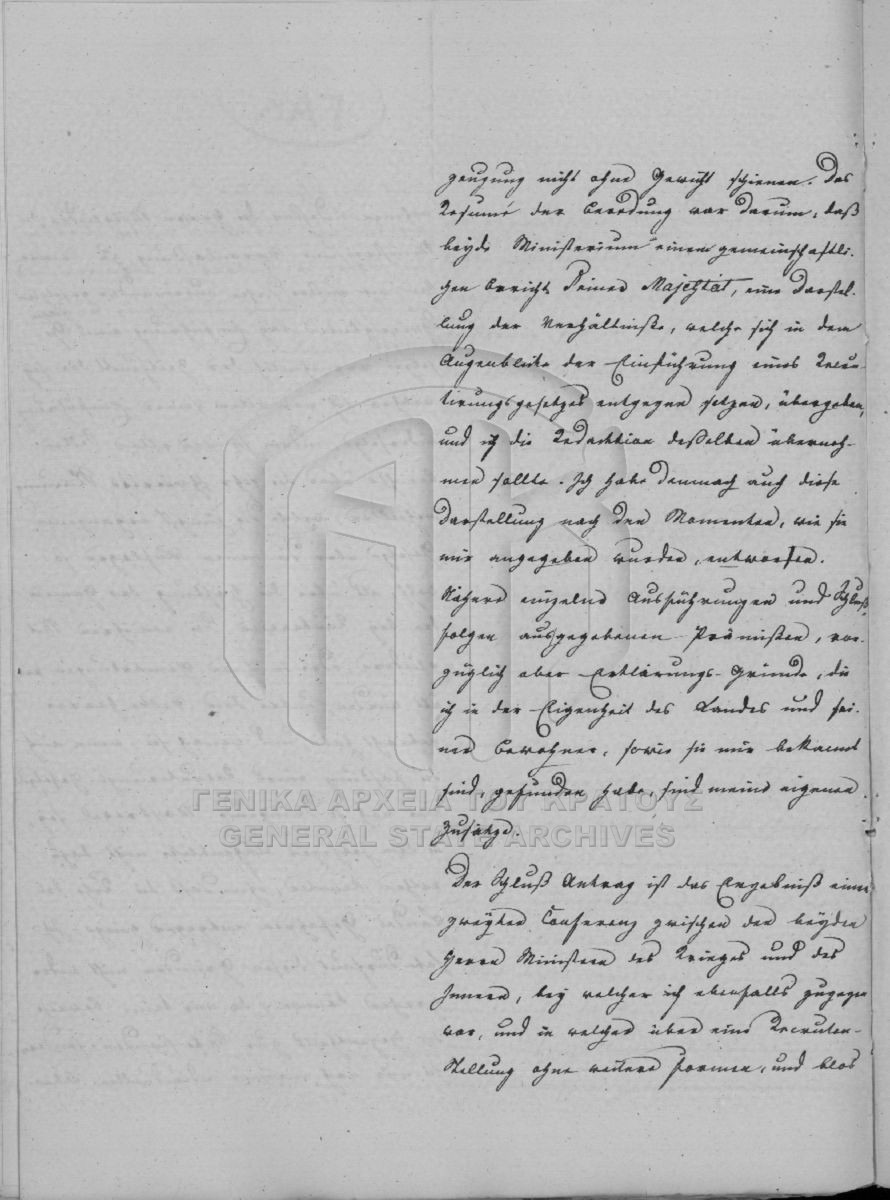 zeugung nicht ohne Gewicht schienen. Das
Resumé der Beredung war darum, daß
beyde Ministerium einen gemeinschaftli-
chen Bericht Seiner Majestät, eine Darstel-
lung der Verhältniße, welche sich in dem
Augenblicke der Einführung eines Recru-
tirungsgesetzes entgegen setzen, übergeben,
und ich die Redaktion deßelben überneh-
men sollte. Ich habe demnach auch diese
Darstellung nach den Momenten, wie sie
mir angegeben wurden, entworfen.
Nähere einzelne Ausführungen und Schluß-
folgen aus gegebenen Prämißen, vor-
züglich aber Erklärungs-Gründe, die
ich in der Eigenheit des Landes und sei-
ner Bewohner, sowie sie mir bekannt
sind, gefunden habe, sind meine eigenen
Zusätze.
Der Schluß Antrag ist das Ergebniß einer
zweyten Conferenz zwischen den beyden
Herrn Ministern des Krieges und des
Innern, bey welcher ich ebenfalls zugegen
war, und in welcher über eine Recruten-
Stellung ohne weitere Formen, und blos
ΓΕΝΙΚΑ ΑΡΧΕΙΑ ΤΟΥ ΚΡΑΤΟΥΣ
GENERAL STATE ARCHIVES